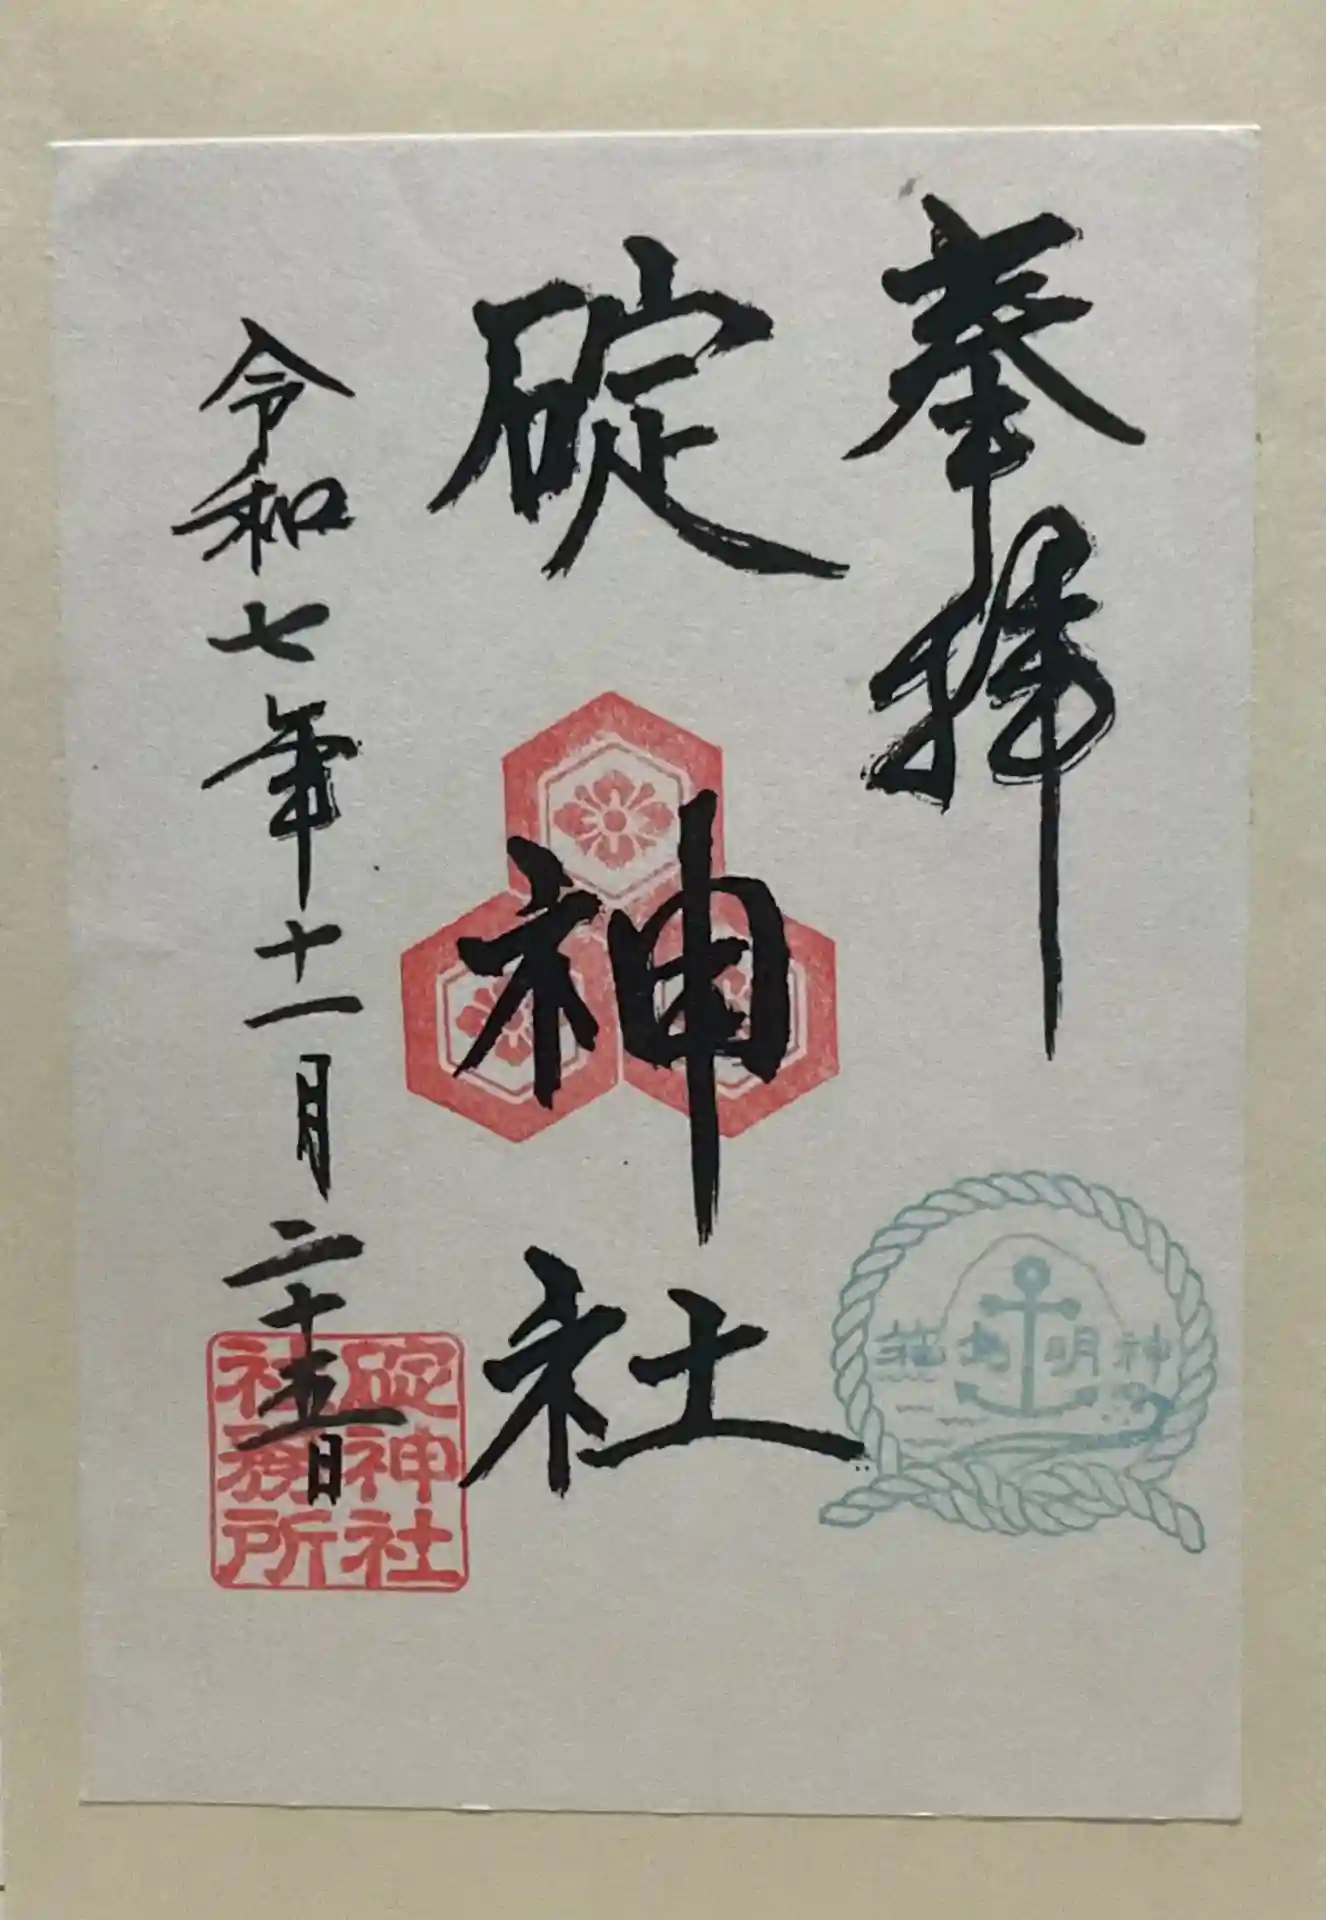 奉拝
碇神社
令和七年十一月二十五日
碇神社
社務所
明神